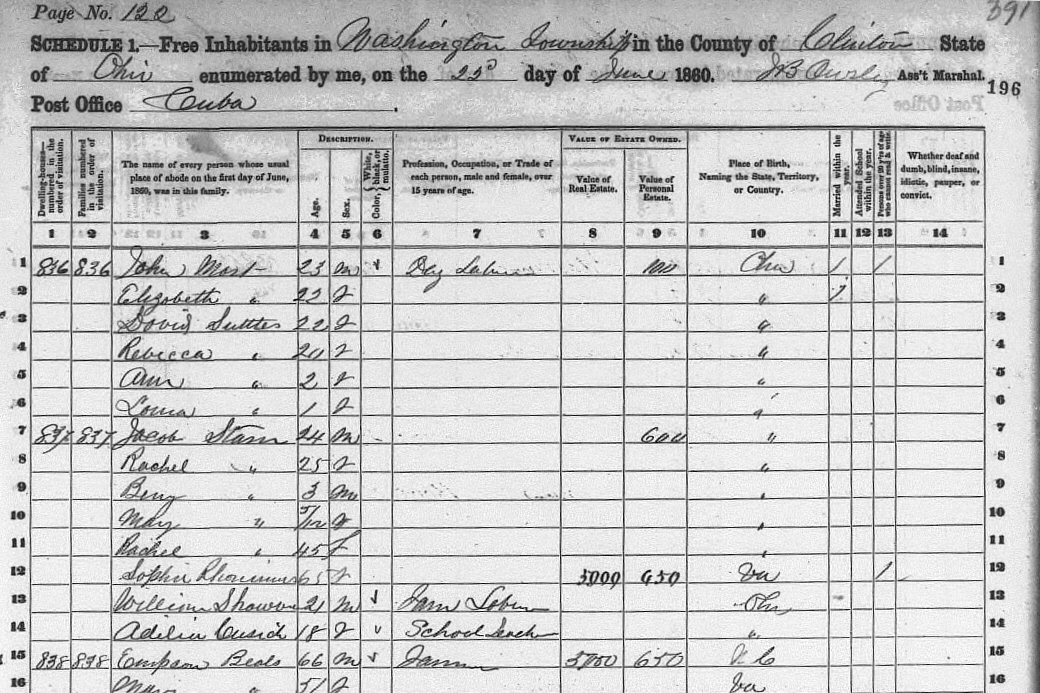 Page No. 120
391
SCHEDULE 1.—Free Inhabitants in Washington Township in the County of Clinton State
of Ohio enumerated by me, on the 25th day of June 1860. Ass't Marshal.
196
Post Office Cuba.
DESCRIPTION. VALUE OF ESTATE OWNED.
Dwelling-houses—numbered in the order of visitation. Families numbered in the order of visitation. The name of every person whose usual place of abode on the first day of June, 1860, was in this family. Age. Sex. Color, White, black, or mulatto. Profession, Occupation, or Trade of each person, male and female, over 15 years of age. Value of Real Estate. Value of Personal Estate. Place of Birth, Naming the State, Territory, or Country. Married within the year. Attended School within the year. Persons over 20 y'rs of age who cannot read & write. Whether deaf and dumb, blind, insane, idiotic, pauper, or convict.
1 2 3 4 5 6 7 8 9 10 11 12 13 14
1 836 836 John 23 m Day Laborer 100 Ohio / / 1
2 Elizabeth " 22 f " 1 2
3 David Suttles 22 f " 3
4 Rebecca " 20 f " 4
5 Ann " 2 f " 5
6 " 1 f " 6
7 837 837 Jacob Starn 24 m 600 " 7
8 Rachel " 25 f " 8
9 Benj " 3 m " 9
10 Mary " 5/12 f " 10
11 Rachel " 45 f " 11
12 Sophia 65 f 5000 650 Va / 12
13 William 21 m Farm Labor Ohio 13
14 Adelia Cusick 18 f School Teacher " 14
15 838 838 Empson Beals 66 m Farmer 5000 650 N C 15
16 Mary " 51 f Va 16